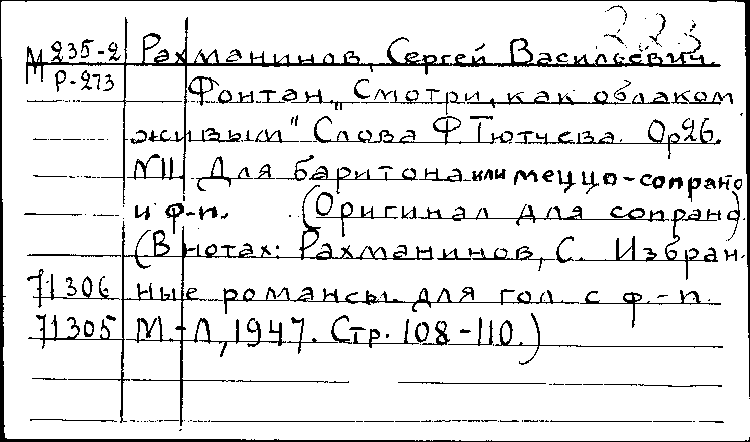 223
М 235-2 Рахманинов, Сергей Васильевич.
Р-273 Фонтан. „Смотри, как облаком
живым" Слова Ф. Тютчева. Ор26.
N11. Для баритона или меццо-сопрано
и ф-п. (Оригинал для сопрано)
(В нотах: Рахманинов, С. Избран-
71306 ные романсы для гол. с ф.-п.
71305 М.-Л, 1947. Стр. 108-110.)